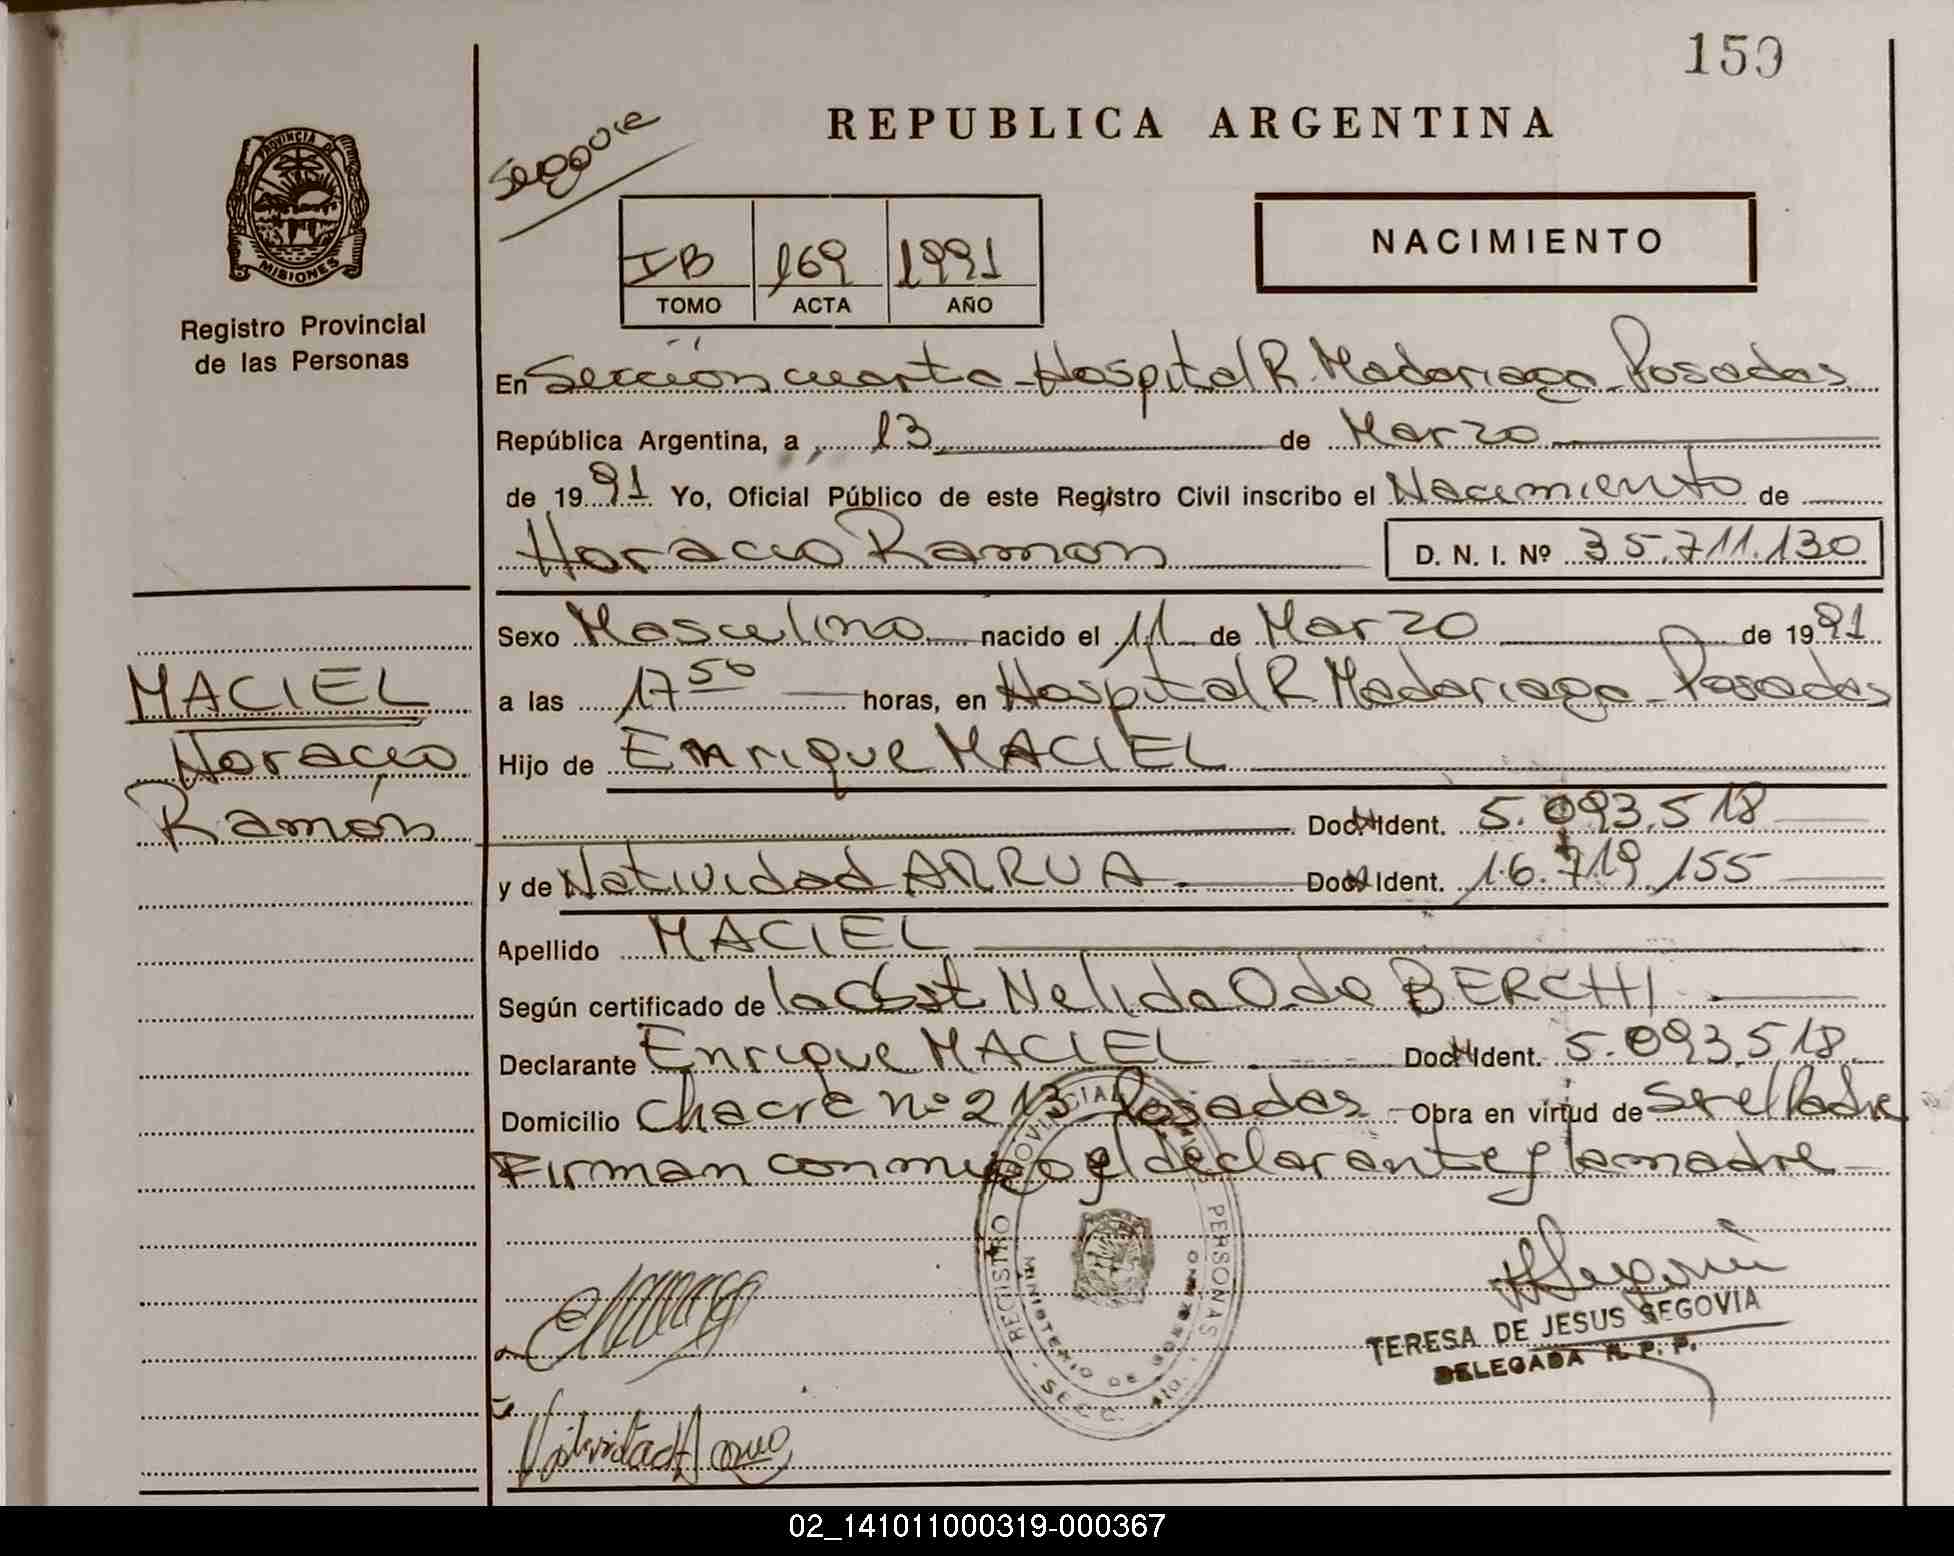 159
REPUBLICA ARGENTINA
PROVINCIA DE
MISIONES
Registro Provincial
de las Personas
NACIMIENTO
IB 169 1991
TOMO ACTA AÑO
En Sección cuarta - Hospital R. Madariaga - Posadas
República Argentina, a 13 de Marzo
de 1991 Yo, Oficial Público de este Registro Civil inscribo el Nacimiento de
Horacio Ramon D. N. I. Nº 35.711.130
Sexo Masculino nacido el 11 de Marzo de 1991
a las 17 50 horas, en Hospital R Madariaga - Posadas
MACIEL
Horacio
Ramón
Hijo de Enrique MACIEL
Doc. Ident. 5.093.518
y de Natividad ARRUA Doc. Ident. 16.719.155
Apellido MACIEL
Según certificado de la Obst Nelida O. de BERCHI
Declarante Enrique MACIEL Doc. Ident. 5.093.518
Domicilio Chacra nº 213 Posadas - Obra en virtud de Ser el Padre
Firman conmigo el declarante y la madre
REGISTRO PROVINCIAL PERSONAS
MINISTERIO DE GOBIERNO
SECC. 4ta.
TERESA DE JESUS SEGOVIA
DELEGADA R. P. P.
Natividad Arrua
02_141011000319-000367